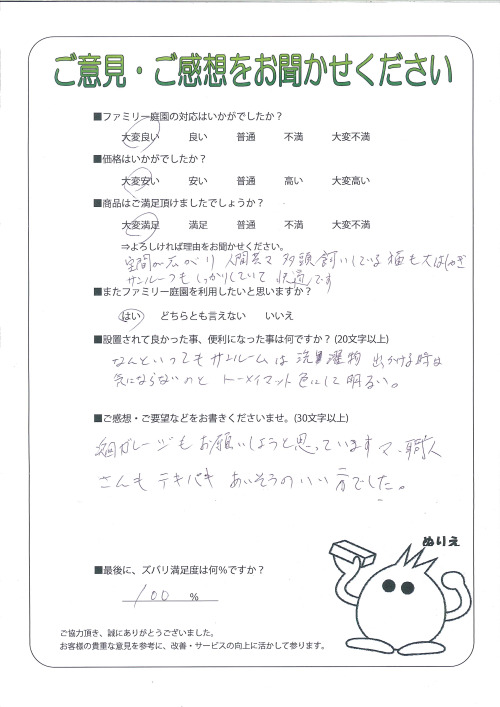 ご意見・ご感想をお聞かせください
■ファミリー庭園の対応はいかがでしたか？
大変良い 良い 普通 不満 大変不満
■価格はいかがでしたか？
大変安い 安い 普通 高い 大変高い
■商品はご満足頂けましたでしょうか？
大変満足 満足 普通 不満 大変不満
⇒よろしければ理由をお聞かせください。
空間が広がり 人間共々 多頭飼いしている猫も大はしゃぎ
サンルーフもしっかりしていて 快適です
■またファミリー庭園を利用したいと思いますか？
はい どちらとも言えない いいえ
■設置されて良かった事、便利になった事は何ですか？(20文字以上)
なんといってもサンルームは 洗濯物 出かける時も
気にならないのと トーメイマット色にして明るい。
■ご感想・ご要望などをお書きくださいませ。(30文字以上)
次回ガレージもお願いしようと思っています 職人
さんも テキパキ あいそうのいい 方でした。
ぬりえ
■最後に、ズバリ満足度は何％ですか？
100 ％
ご協力頂き、誠にありがとうございました。
お客様の貴重な意見を参考に、改善・サービスの向上に活かして参ります。